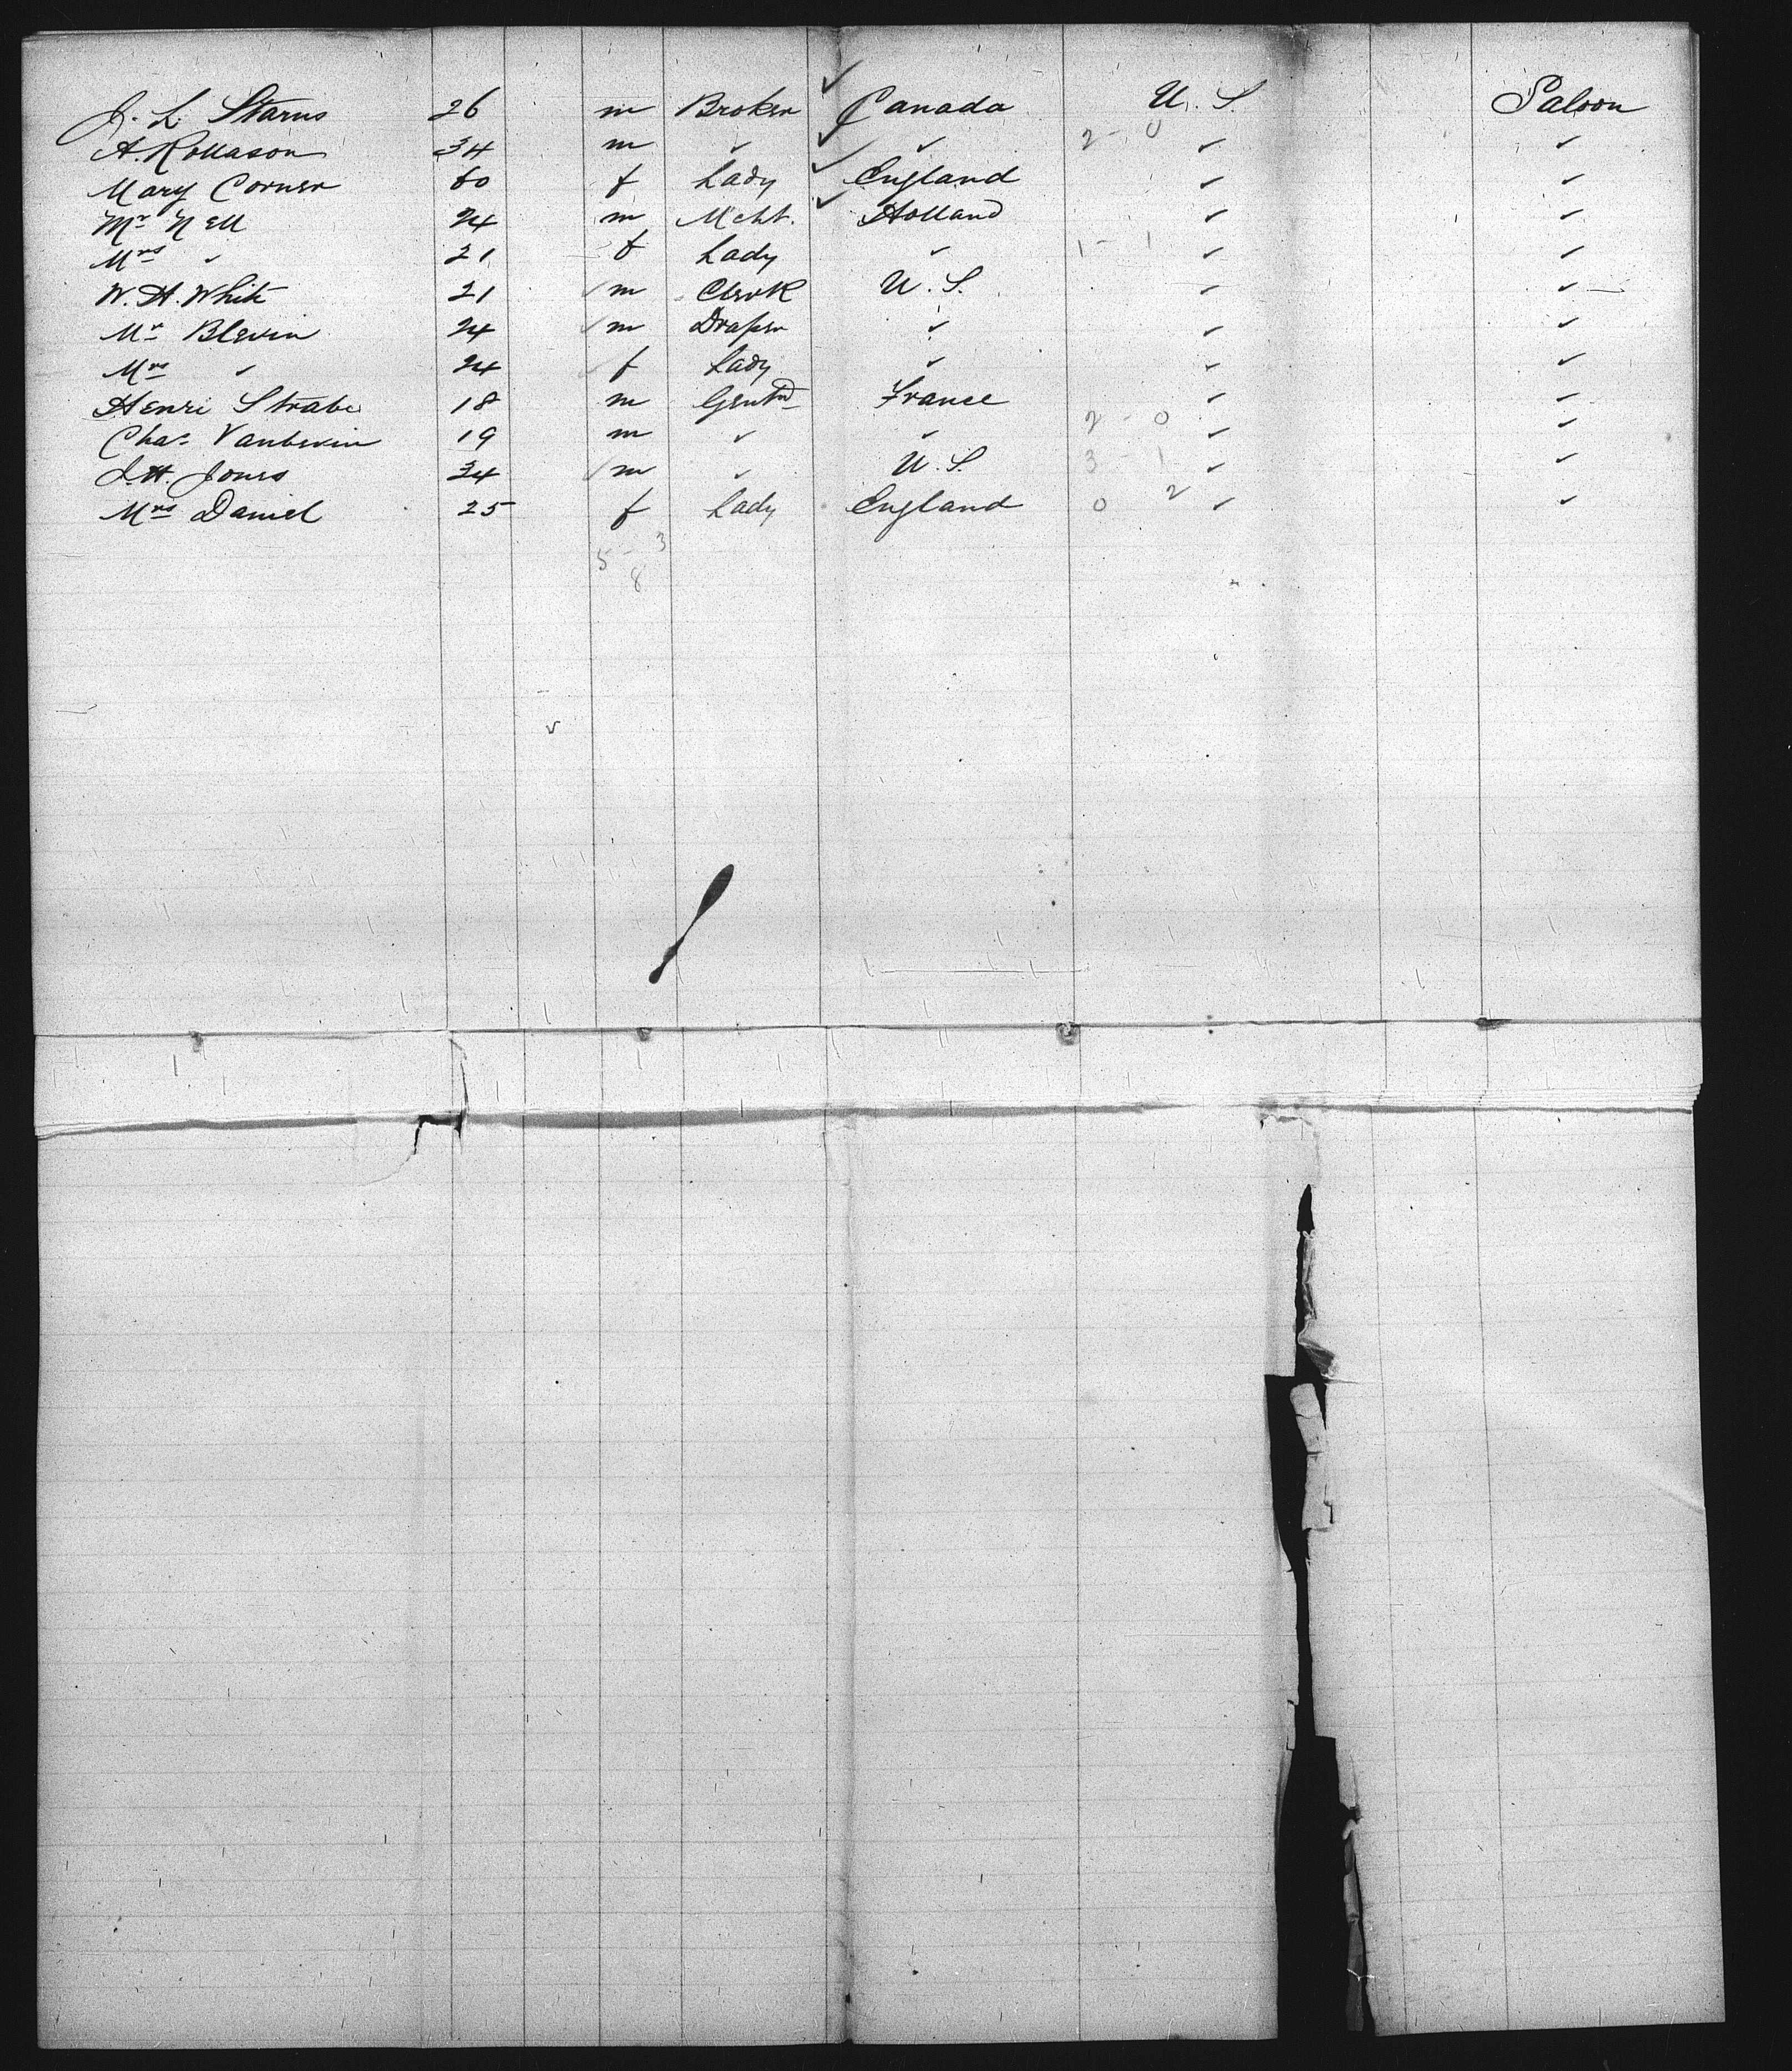 J. L. Starns 26 m Broker ✓ Canada U. S. Saloon
A. Rollason 34 m ✓ ✓ ✓ 2 - 0 ✓ ✓
Mary Corner 60 f Lady ✓ England ✓ ✓
Mr Nell 24 m Mcht. ✓ Holland ✓ ✓
Mrs ✓ 21 f Lady ✓ 1 - 1 ✓ ✓
W. H. White 21 ✓ m Clerk U. S. ✓ ✓
Mr Blevin 24 ✓ m Draper ✓ ✓ ✓
Mrs ✓ 24 ✓ f Lady ✓ ✓ ✓
Henri Strabe 18 m Gentn France ✓ ✓
Chas Vanbevin 19 m ✓ ✓ 2 - 0 ✓ ✓
J. H. Jones 34 ✓ m ✓ U. S. 3 - 1 ✓ ✓
Mrs Daniel 25 f Lady England 0 2 ✓ ✓
5 - 3
8